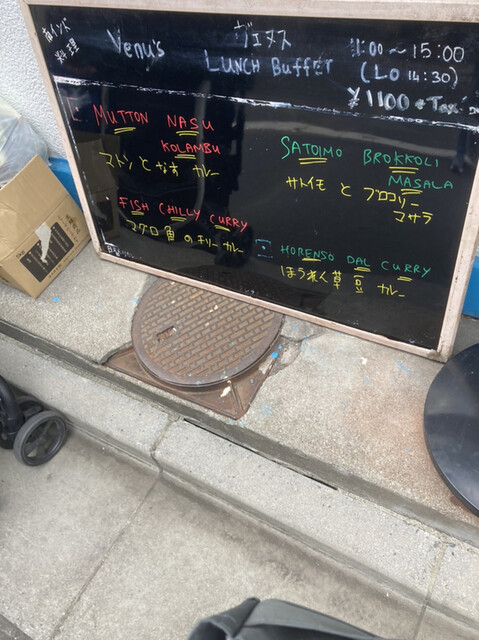 南インド
料理
Venu's
ヴェヌス
LUNCH BUFFET
11:00〜15:00
(LO 14:30)
¥1100 + Tax
MUTTON NASU
KOLAMBU
マトンとなす カレー
FISH CHILLY CURRY
マグロ魚のチリーカレー
SATOIMO BROKKOLI
MASALA
サトイモ と ブロコリー
マサラ
HORENSO DAL CURRY
ほうれん草 豆 カレー